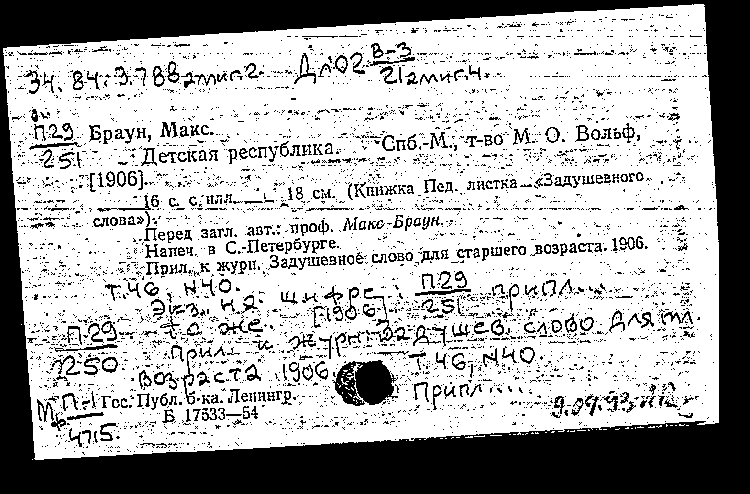 34.84.3.788 2мил.2. Дл02 В-3/21 2мил.4.
П29/251 Браун, Макс.
Детская республика. Спб.-М., т-во М. О. Вольф,
[1906].
16 с. с илл. 18 см. (Книжка Пед. листка «Задушевного
слова»).
Перед загл. авт.: проф. Макс-Браун.
Напеч. в С.-Петербурге.
Прил. к журн. Задушевное слово для старшего возраста. 1906.
Т.46, N40.
Экз. на шифре: П29/251 припл...
П29/250 то же. [1906]
Прил. к журн. Задушев. слово для мл.
возраста 1906. Т 46, N40.
Припл....
П-1 Гос. Публ. б-ка. Ленингр.
4715. Б 17533—54
9.04.93